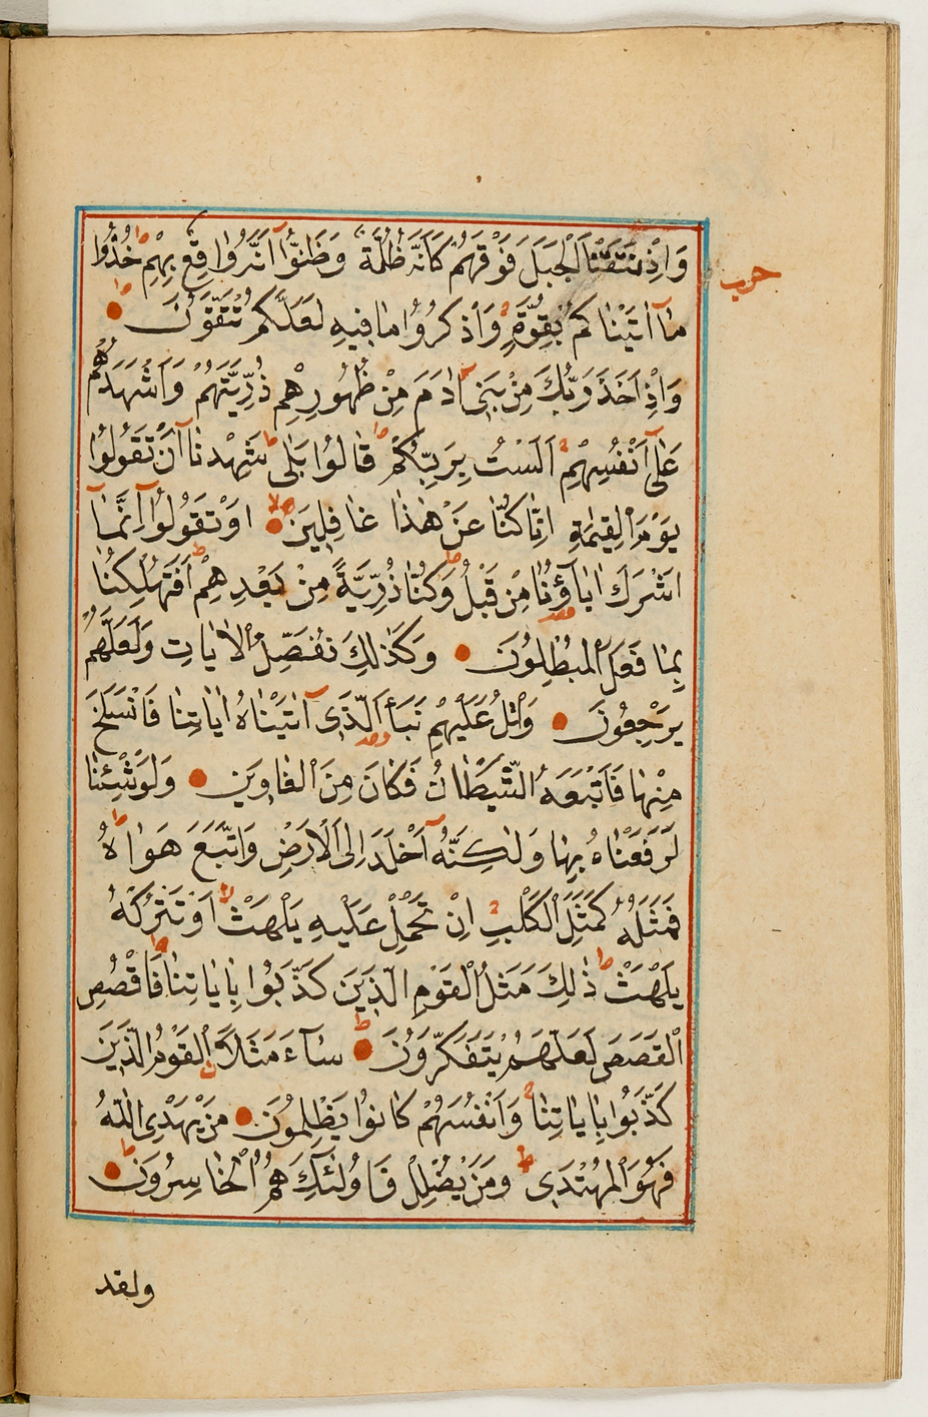 وَاِذْ نَتَقْنَا الْجَبَلَ فَوْقَهُمْ كَاَنَّهُ ظُلَّةٌ وَظَنُّوٓا اَنَّهُ وَاقِعٌ بِهِمْ خُذُوا
حزب
مَٓا اٰتَيْنَاكُمْ بِقُوَّةٍ وَاذْكُرُوا مَا فِيهِ لَعَلَّكُمْ تَتَّقُونَ
وَاِذْ اَخَذَ رَبُّكَ مِنْ بَنِىٓ اٰدَمَ مِنْ ظُهُورِهِمْ ذُرِّيَّتَهُمْ وَاَشْهَدَهُمْ
عَلٰٓى اَنْفُسِهِمْ اَلَسْتُ بِرَبِّكُمْ قَالُوا بَلٰى شَهِدْنَٓا اَنْ تَقُولُوا
يَوْمَ الْقِيٰمَةِ اِنَّا كُنَّا عَنْ هٰذَا غَافِلِينَ اَوْ تَقُولُٓوا اِنَّمَٓا
اَشْرَكَ اٰبَٓاؤُنَا مِنْ قَبْلُ وَكُنَّا ذُرِّيَّةً مِنْ بَعْدِهِمْ اَفَتُهْلِكُنَا
بِمَا فَعَلَ الْمُبْطِلُونَ وَكَذٰلِكَ نُفَصِّلُ الْاٰيَاتِ وَلَعَلَّهُمْ
يَرْجِعُونَ وَاتْلُ عَلَيْهِمْ نَبَأَ الَّذِىٓ اٰتَيْنَاهُ اٰيَاتِنَا فَانْسَلَخَ
مِنْهَا فَاَتْبَعَهُ الشَّيْطَانُ فَكَانَ مِنَ الْغَاوِينَ وَلَوْ شِئْنَا
لَرَفَعْنَاهُ بِهَا وَلٰكِنَّهُٓ اَخْلَدَ اِلَى الْاَرْضِ وَاتَّبَعَ هَوٰاهُ
فَمَثَلُهُ كَمَثَلِ الْكَلْبِ اِنْ تَحْمِلْ عَلَيْهِ يَلْهَثْ اَوْ تَتْرُكْهُ
يَلْهَثْ ذٰلِكَ مَثَلُ الْقَوْمِ الَّذِينَ كَذَّبُوا بِاٰيَاتِنَا فَاقْصُصِ
الْقَصَصَ لَعَلَّهُمْ يَتَفَكَّرُونَ سَٓاءَ مَثَلًا الْقَوْمُ الَّذِينَ
كَذَّبُوا بِاٰيَاتِنَا وَاَنْفُسَهُمْ كَانُوا يَظْلِمُونَ مَنْ يَهْدِى اللّٰهُ
فَهُوَ الْمُهْتَدِى وَمَنْ يُضْلِلْ فَاُولٰٓئِكَ هُمُ الْخَاسِرُونَ
ولقد